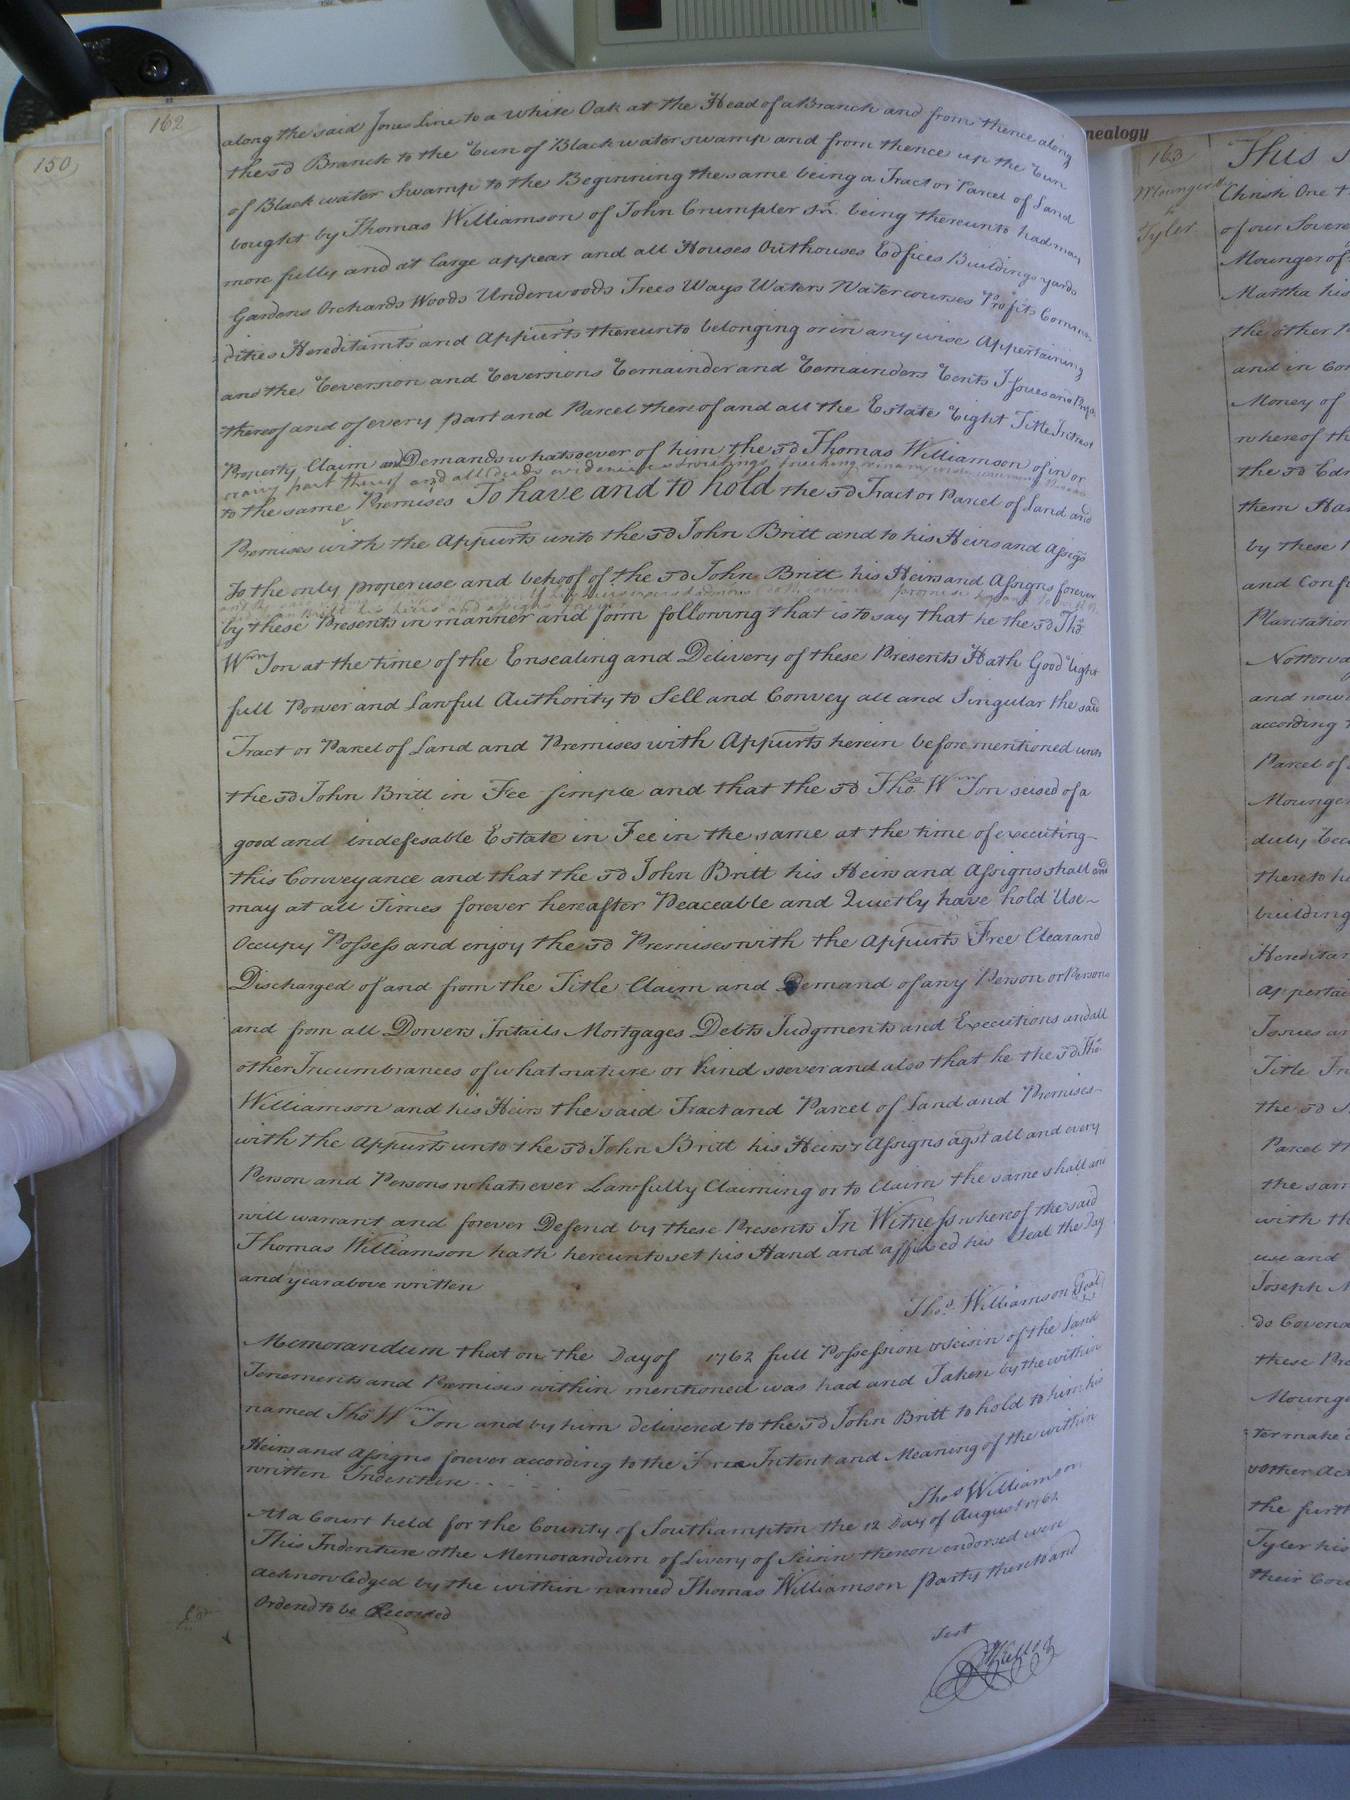 162
along the said Jones line to a white Oak at the Head of a Branch and from thence along
the sd Branch to the Run of Blackwater swamp and from thence up the Run
of Blackwater Swamp to the Beginning the same being a Tract or Parcel of Land
bought by Thomas Williamson of John Crumpler Sr. being thereunto had may
more fully and at large appear and all Houses Outhouses Edfices Buildings yards
Gardens Orchards Woods Underwoods Trees Ways Waters Watercourses Profits Commo
dities Hereditamts and Appurts thereunto belonging or in any wise Appertaining
and the Reversion and Reversions Remainder and Remainders Rents Issues and Profits
thereof and of every part and Parcel thereof and all the Estate Right Title Intrest
Property Claim and Demands whatsoever of him the sd Thomas Williamson of in or
every part thereof and all deeds evidences & writings touching or in any wise
to the same Premises To have and to hold the sd Tract or Parcel of Land and
Premises with the Appurts unto the sd John Britt and to his Heirs and Assigs
To the only proper use and behoof of the sd John Britt his Heirs and Assigns forever
Britt his heirs and assigns
by these Presents in manner and form following that is to say that he the sd Thos
Wmson at the time of the Ensealing and Delivery of these Presents Hath Good right
full Power and Lawful Authority to Sell and Convey all and Singular the said
Tract or Parcel of Land and Premises with Appurts herein before mentioned unto
the sd John Britt in Fee simple and that the sd Thos. Wmson seised of a
good and indefesable Estate in Fee in the same at the time of executing
this Conveyance and that the sd John Britt his Heirs and Assigns shall and
may at all Times forever hereafter Peaceable and Quietly have hold Use
Occupy Possess and enjoy the sd Premises with the appurts Free Clear and
Discharged of and from the Title Claim and Demand of any Person or Persons
and from all Dowers Intails Mortgages Debts Judgments and Executions and all
other Incumbrances of what nature or kind soever and also that he the sd Thos.
Williamson and his Heirs the said Tract and Parcel of Land and Premises
with the Appurts unto the sd John Britt his Heirs & Assigns agst all and every
Person and Persons whatsever Lawfully Claiming or to Claim the same shall and
will warrant and forever Defend by these Presents In Witness whereof the said
Thomas Williamson hath hereunto set his Hand and affixed his Seal the Day
and year above written
Thos. Williamson Seal
Memorandum that on the Day of 1762 full Possession & seisin of the Land
Tenements and Premises within mentioned was had and Taken by the within
named Thos Wmson and by him delivered to the sd John Britt to hold to him his
Heirs and Assigns forever according to the True Intent and Meaning of the within
written Indenture
Thos Williamson
At a Court held for the County of Southampton the 12 Day of August 1762
This Indenture & the Memorandum of Livery of Seisin thereon endorsed were
acknowledged by the within named Thomas Williamson party thereto and
Ordered to be Recorded
Test
150
nealogy
163
Tyler
This
Christ One
of our Sovere
Mounger of
Martha his
the other
and in Con
Money of
whereof th
the sd Ed
them
by these
and Conf
Plantation
Nottoway
and now
according
Parcel of
Mounger
duly
thereto
building
Hereditam
appertai
Issues an
Title In
the sd
Parcel th
the sam
with th
use and
Joseph
do Covena
these Pre
Mounge
ter make
other Act
the furth
Tyler his
their